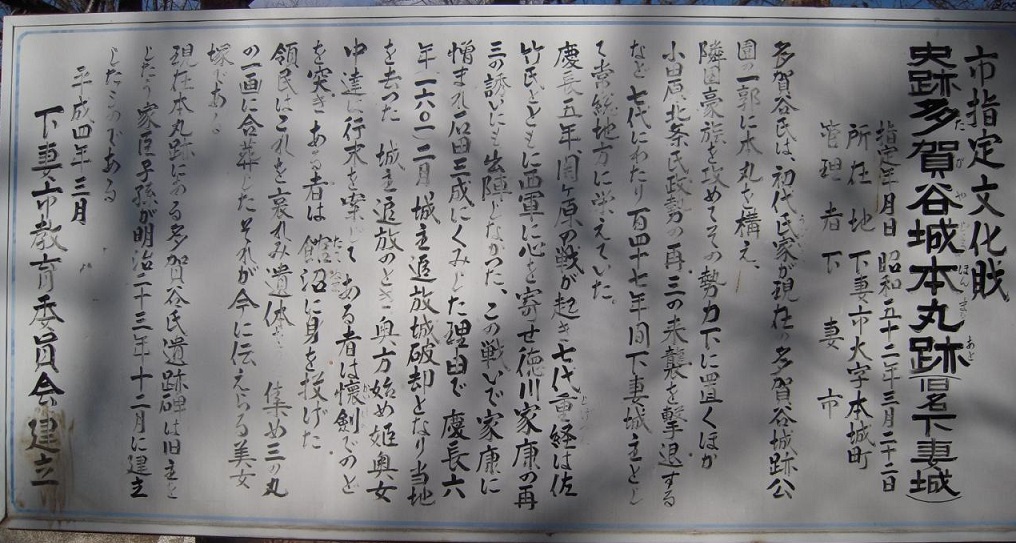 市指定文化財
史跡多賀谷城本丸跡(旧名下妻城)
指定年月日 昭和五十二年三月二十二日
所在地 下妻市大字本城町
管理者 下妻市
多賀谷氏は、初代氏家が現在の多賀谷城跡公
園の一郭に本丸を構え、
隣国豪族を攻めてその勢力下に置くほか
小田、北条氏政勢の再三の来襲を撃退する
など七代にわたり百四十七年間下妻城主とし
て常総地方に栄えていた。
慶長五年関ヶ原の戦が起き七代重経は佐
竹氏とともに西軍に心を寄せ徳川家康の再
三の誘いにも出陣しなかった、この戦いで家康に
憎まれ石田三成にくみした理由で慶長六
年一六〇一二月城主追放城破却となり当地
を去った 城主追放のとき奥方始め姫奥女
中達は行末を嘆いて ある者は懐剣でのと
を突き ある者は 館沼に身を投げた
領民はこれを哀れみ遺体を 集め三の丸
の一画に合葬した それが今に伝えらる美女
塚である
現在本丸跡にある多賀谷氏遺跡碑は旧主を
したう家臣子孫が明治二十三年十二月に建立
したものである
平成四年三月
下妻市教育委員会建立